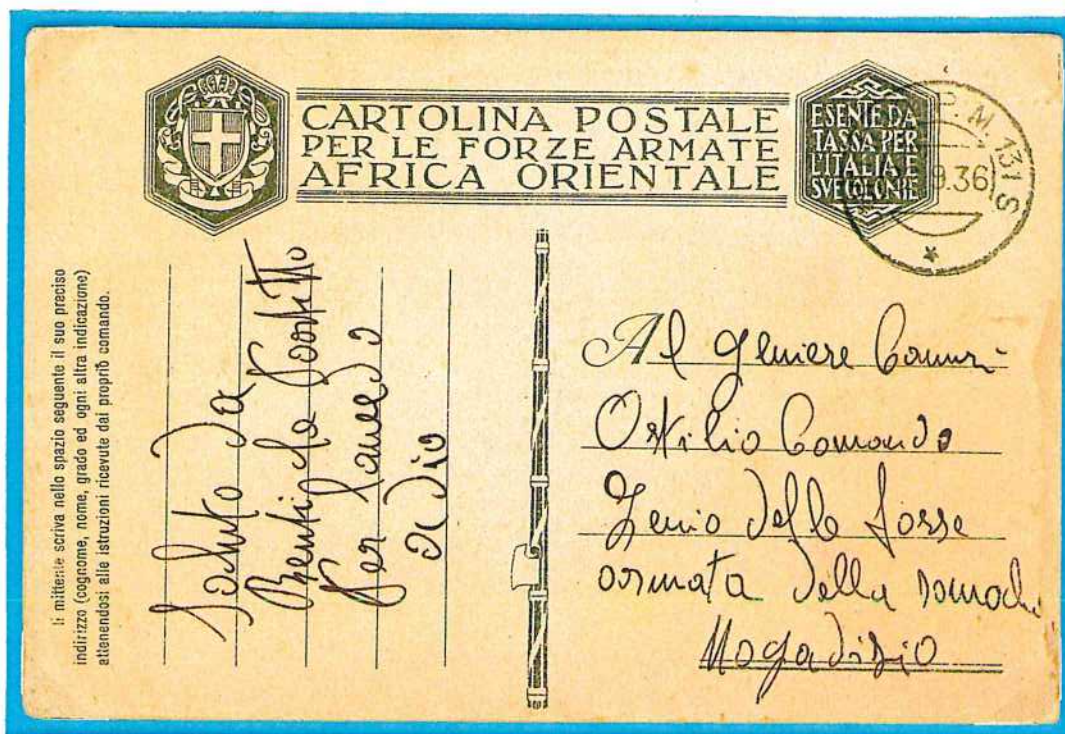 CARTOLINA POSTALE
PER LE FORZE ARMATE
AFRICA ORIENTALE
ESENTE DA
TASSA PER
L'ITALIA E
SVE COLONIE
P. M. 131 S
9.36
Il mittente scriva nello spazio seguente il suo preciso
indirizzo (cognome, nome, grado ed ogni altra indicazione)
attenendosi alle istruzioni ricevute dal proprio comando.
Saluto da
Per
Dio
Al Geniere
Ostilio Comando
Zenio delle forse
armata della
Mogadisio